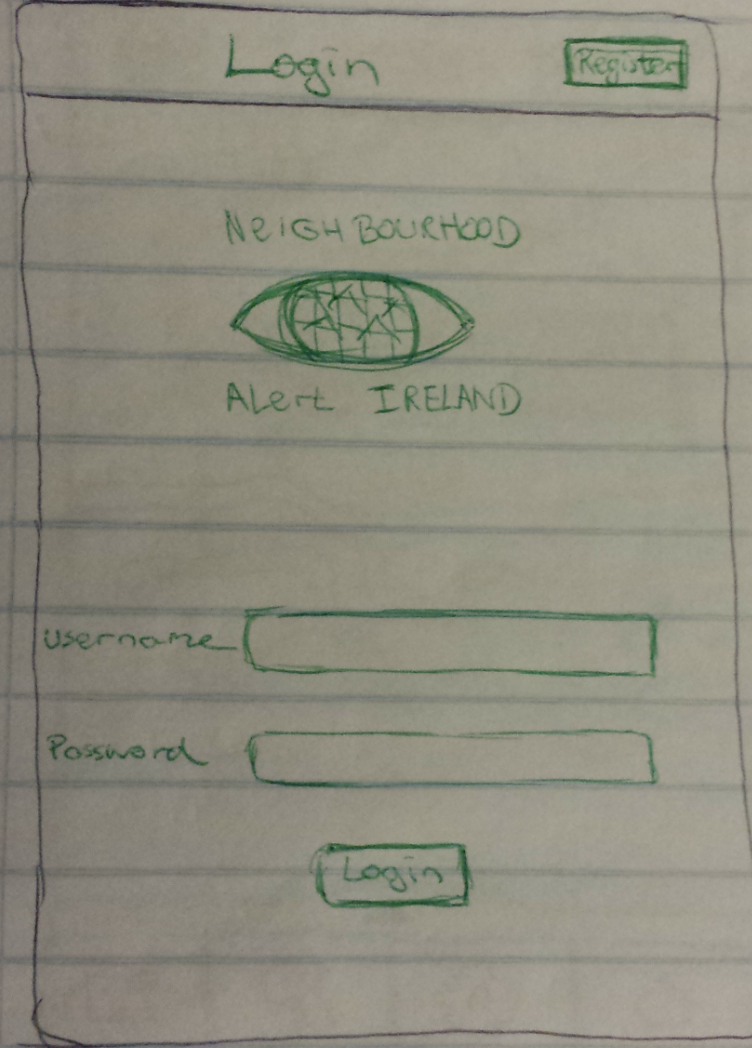 Login Register
NeIGHBOURHOOD
ALert IRELAND
username
Password
Login